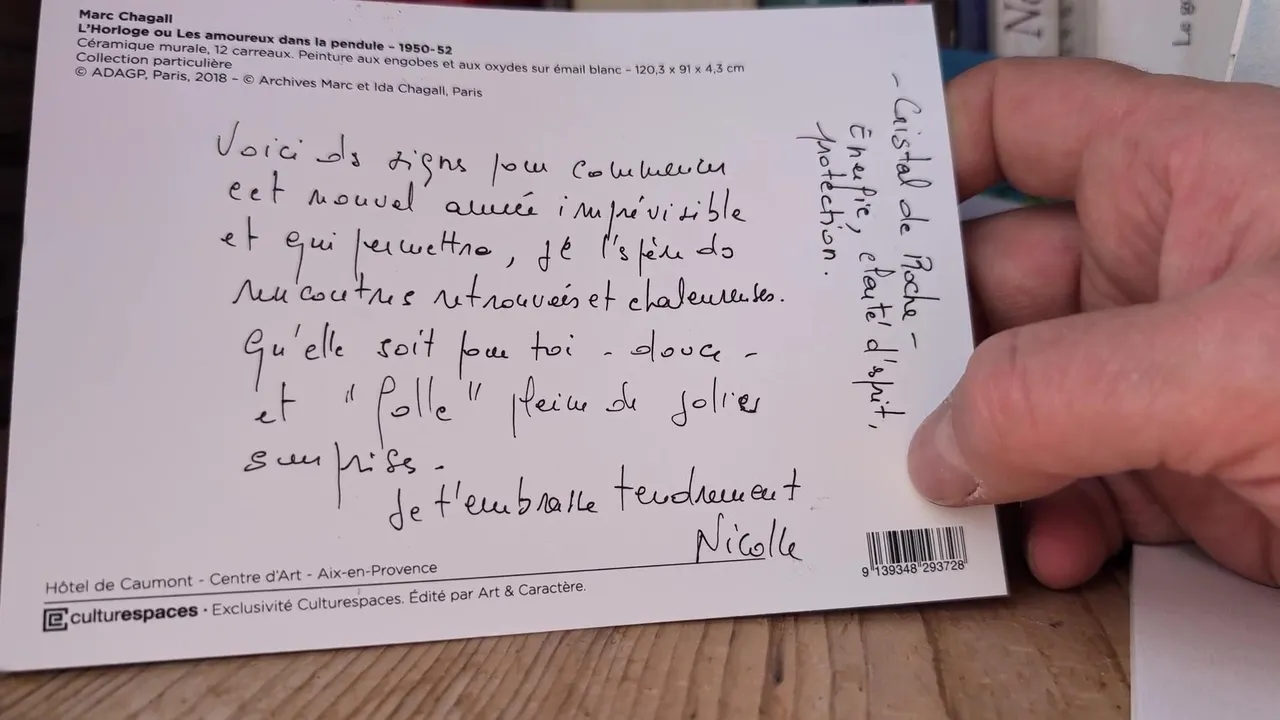 Marc Chagall
L'Horloge ou Les amoureux dans la pendule - 1950-52
Céramique murale, 12 carreaux. Peinture aux engobes et aux oxydes sur émail blanc - 120,3 x 91 x 4,3 cm
Collection particulière
© ADAGP, Paris, 2018 - © Archives Marc et Ida Chagall, Paris
Voici ds signs pour commencer
cet nouvel année imprévisible
et qui permettra, je l'spère ds
rencontres retrouvées et chaleureuses.
Qu'elle soit pour toi - douce -
et "folle" pleine de jolies
surprises.
Je t'embrasse tendrement
Nicolle
- Cristal de Roche -
Energie, clarté d'sprit,
protection.
9 139348 293728
Hôtel de Caumont - Centre d'Art - Aix-en-Provence
culturespaces · Exclusivité Culturespaces. Édité par Art & Caractère.
Le